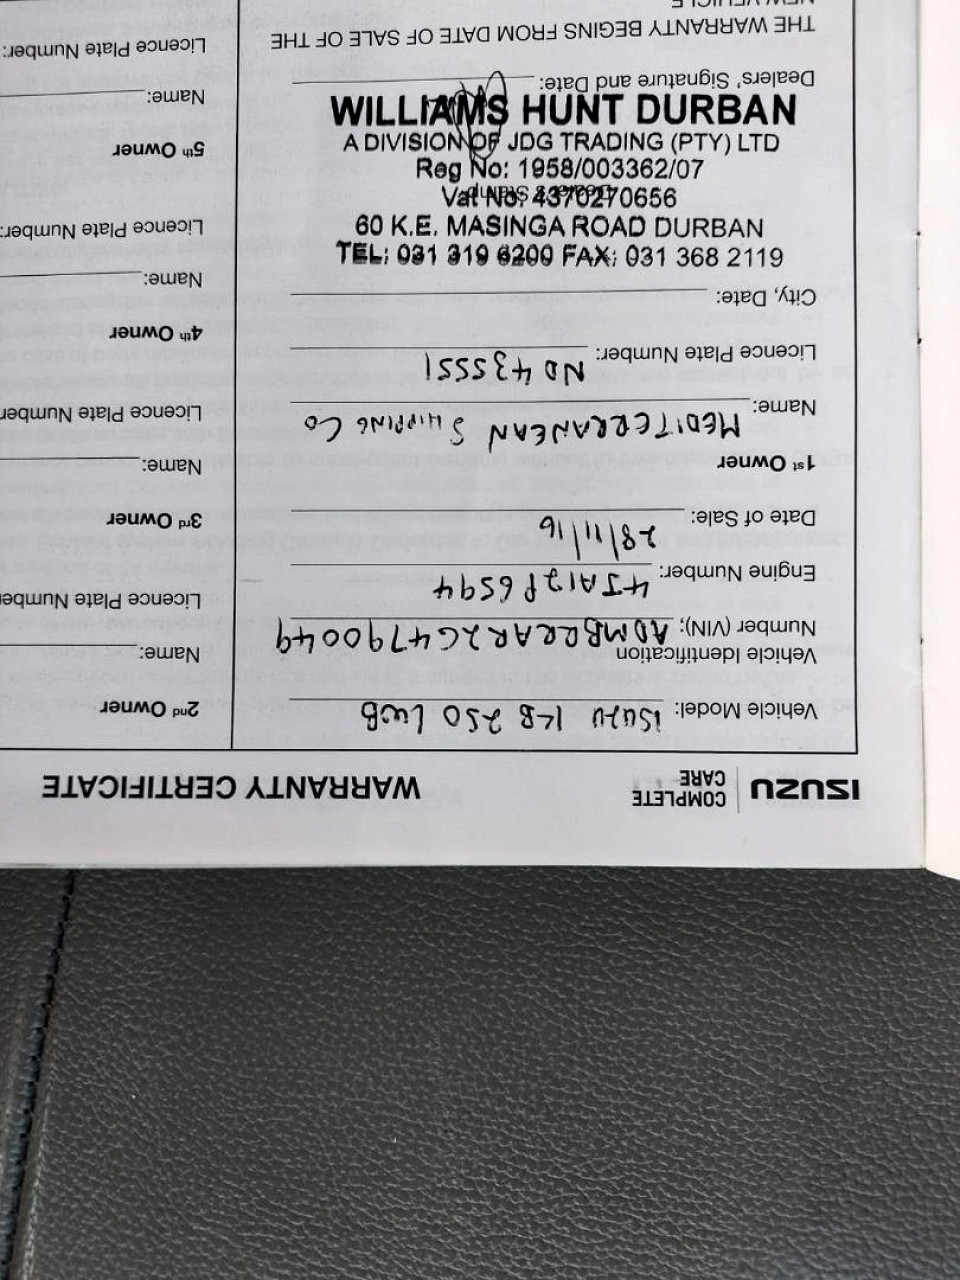 ISUZU COMPLETE CARE WARRANTY CERTIFICATE
Vehicle Model: ISUZU KB 250 LWB
Vehicle Identification
Number (VIN):
Engine Number: 4JA12P6594
Date of Sale: 28/11/16
1st Owner
Name: MEDITERRANEAN SHIPPING CO
Licence Plate Number: ND 435551
City, Date:
Dealer's Stamp
WILLIAMS HUNT DURBAN
A DIVISION OF JDG TRADING (PTY) LTD
Reg No: 1958/003362/07
Vat No: 4370270656
60 K.E. MASINGA ROAD DURBAN
TEL: 031 319 6200 FAX: 031 368 2119
Dealers' Signature and Date:
THE WARRANTY BEGINS FROM DATE OF SALE OF THE
NEW VEHICLE
2nd Owner
Name:
Licence Plate Number
3rd Owner
Name:
Licence Plate Number
4th Owner
Name:
Licence Plate Number:
5th Owner
Name:
Licence Plate Number: